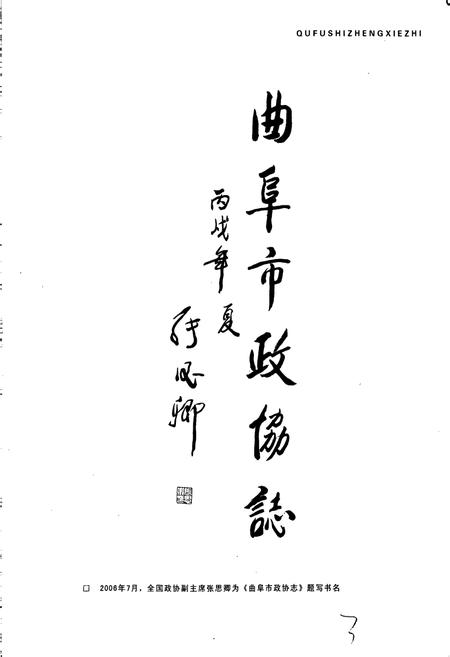 QUFUSHIZHENGXIEZHI
曲阜市政協誌
丙戌年夏
张思卿
□ 2006年7月，全国政协副主席张思卿为《曲阜市政协志》题写书名